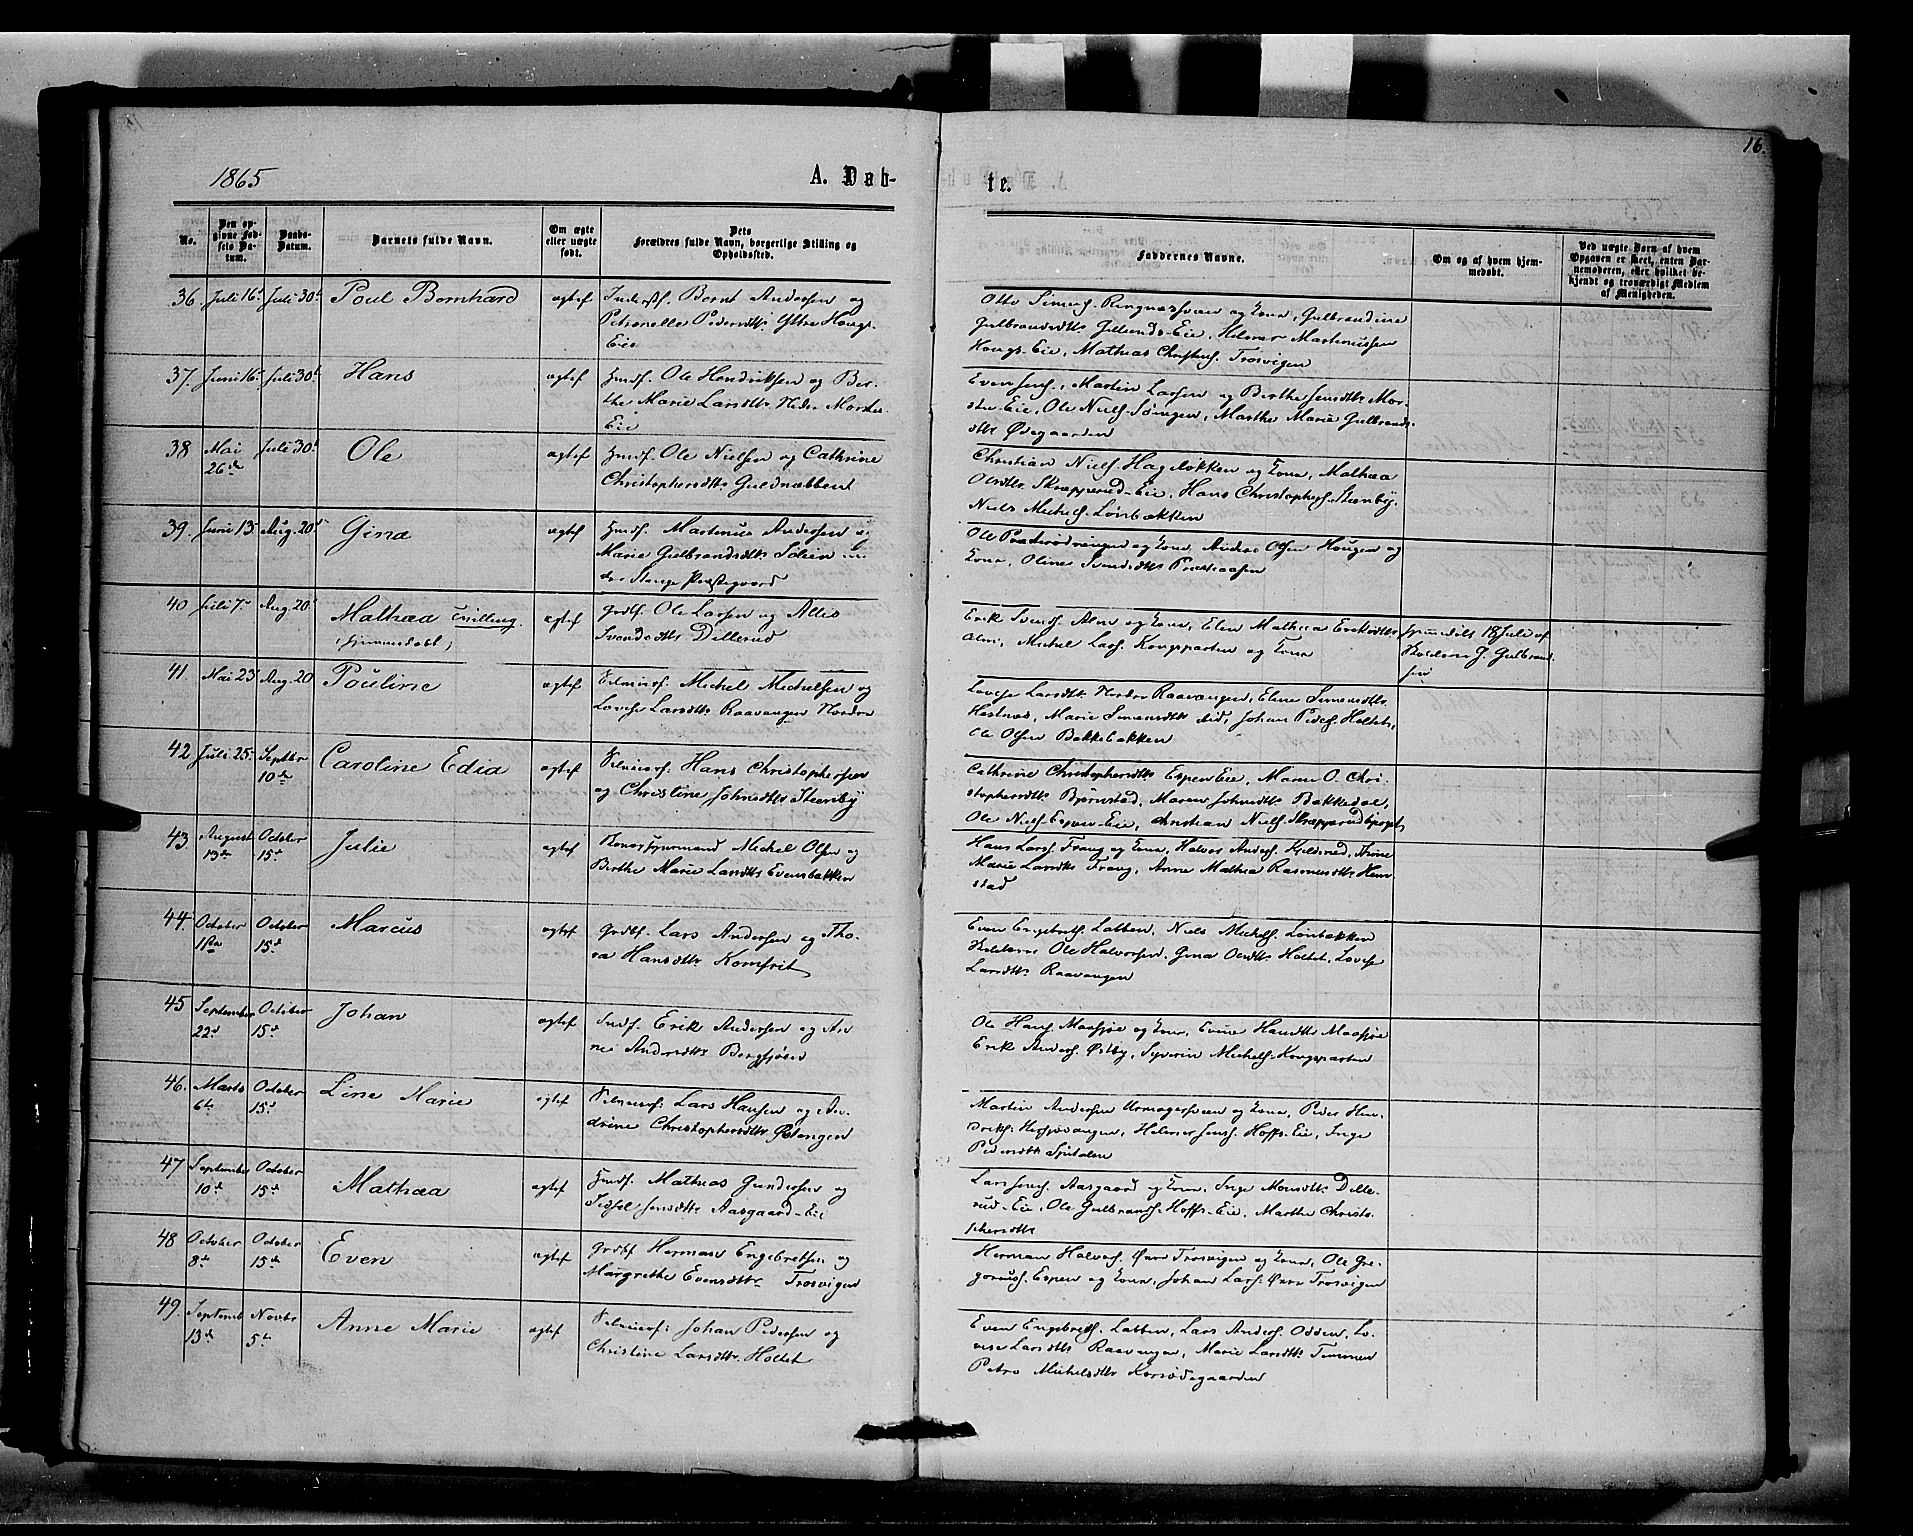 16.
1865
A. Døb-
te.
No.
Den opgivne Fødsels Datum.
Daabs-Datum.
Barnets fulde Navn.
Om ægte eller uægte født.
Dets Forældres fulde Navn, borgerlige Stilling og Opholdssted.
Faddernes Navne.
Om og af hvem hjemmedøbt.
Ved uægte Barn af hvem Opgaven er skeet, enten Barnemoderen, eller hvilket bekjendt og troværdigt Medlem af Menigheden.
36 Juli 16 Juli 30 Poul Bernhard ægtef Inderst. Bernt Andersen og
Petronelle Pedersdtr Yttre Houg-
Eie
Otto Simens. Ringnæssveen og Kone, Gulbrandine
Gulbrandsdtr Gillunds-Eie, Helmer Martinussen
Hougs-Eie, Mathias Christens. Trosvigen
37. Juni 16 Juli 30 Hans ægtef Husm. Ole Hendriksen og Ber-
the Marie Larsdtr Nedre
Eie
Even Jens., Martin Larsen og Berthe Jensdtr
Eie, Ole Niels., Marthe Marie Gulbrands-
dtr Ødegaarden
38 Mai 26de Juli 30 Ole ægtef Husm. Ole Nielsen og Cathrine
Christophersdtr Guldnæbbent
Christian Niels. Hageløkken og Kone, Mathea
Olsdtr Skræpperud-Eie, Hans Christophers. Steenby
Niels Michels. Lønbækken
39. Juni 13 Aug. 20 Gina ægtef Husm. Martinus Andersen og
Marie Gulbrandsdtr un-
der Stange Præstegaard
Ole og Kone, Andreas Olsen Hougen og
Kone, Oline Svendsdtr Præsteaasen
40 Juli 7 Aug. 20 Mathea Tvilling
(hjemmedøbt) ægtef Grdb. Ole Larsen og Alis
Svendsdtr Dillerud
Erik Svends. Alm og Kone, Elen Mathea Eriksdtr
Alm, Michel Lars. Kongsparten og Kone
hjemmedøbt 18 Juli af
Skolelærer J. Gulbrand-
sen
41. Mai 23 Aug. 20 Pouline ægtef Selveier. Michel Michelsen og
Lovise Larsdtr Raavangen Nordre
Lovise Larsdtr Nordre Raavangen, Eline Simensdtr
Hestnæs, Marie Simensdtr ibid, Johan Peders. Holtet,
Ole Olsen Bakkebakken
42 Juli 25 Septber 10de Caroline Edia ægtef Selveier. Hans Christophersen
og Christine Johnsdtr Steenby
Cathrine Christophersdtr Espen Eie, Maren O. Chri-
stophersdtr Bjørnstad, Maren Johnsdtr Bakkedal,
Ole Niels. Espen-Eie, Christian Niels. Skræpperudbjerget
43. August 13de October 15de Julie ægtef Michel Olsen og
Berthe Marie Larsdtr Evensbakken
Hans Lars. Frang og Kone, Halvor Anders. Kjelsrud, Thrine
Marie Larsdtr Frang, Anne Mathea Rasmusdtr Hem-
stad
44. October 1ste October 15de Marcus ægtef Grdbr. Lars Andersen og Tho-
ra Hansdtr Komfrit
Even Engebreths. Labben, Niels Michels. Lønbækken
Skolelærer Ole Halvorsen, Gina Olsdtr Holtet, Lovise
Larsdtr Raavangen
45 September 22de October 15de Johan ægtef Erik Andersen og An-
ne Andersdtr Bergsjøen
Ole Hans. Maasjøe og Kone, Eveline Hansdtr Maasjøe
Erik Anders. Østby, Syverin Michels. Kongsparten
46. Marts 6te October 15de Line Marie ægtef Selveier. Lars Hansen og An-
drine Christophersdtr Østengen
Martin Andersen Urmagersveen og Kone, Peder Hen-
driks. Hersøvangen, Helmer Jens. Hoffs-Eie, Inge
Pedersdtr Spitalen
47 September 10de October 15de Mathea ægtef Husm. Mathias Gundersen og
Sidsel Jensdtr Aasgaard-Eie
Lars Jens. Aasgaard og Kone, Inge Monsdtr Dille-
rud-Eie, Ole Gulbrands. Hoffs-Eie, Marthe Christo-
phersdtr
48 October 8de October 15de Even ægtef Grdbr Herman Engebretsen og
Margrethe Evensdtr Trosvigen
Herman Halvors. Øvre Trosvigen og Kone, Ole Gre-
goriuss. Espen og Kone, Johan Lars. Øvre Trosvigen
49. Septemb 13de Novbr 5te Anne Marie ægtef Selveier. Johan Pedersen og
Christine Larsdtr. Holtet
Even Engebreths. Labben, Lars Anders. Odden, Lo-
vise Larsdtr Raavangen, Marie Larsdtr Timmen
Petra Michelsdtr Korsødegaarden